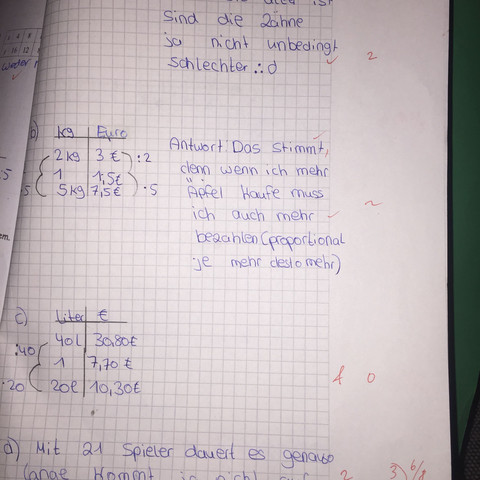 Sind die Zähne
ja nicht unbedingt
schlechter :d
2
b) kg Euro
2kg 3€ :2
1 1,5€
5kg 7,5€ ·5
Antwort: Das stimmt,
denn wenn ich mehr
Äpfel kaufe muss
ich auch mehr
bezahlen (proportional
je mehr desto mehr)
c) Liter €
:40 40l 30,80€
1 7,70€
·20 20l 10,30€
f 0
d) Mit 21 Spieler dauert es genauso
lange